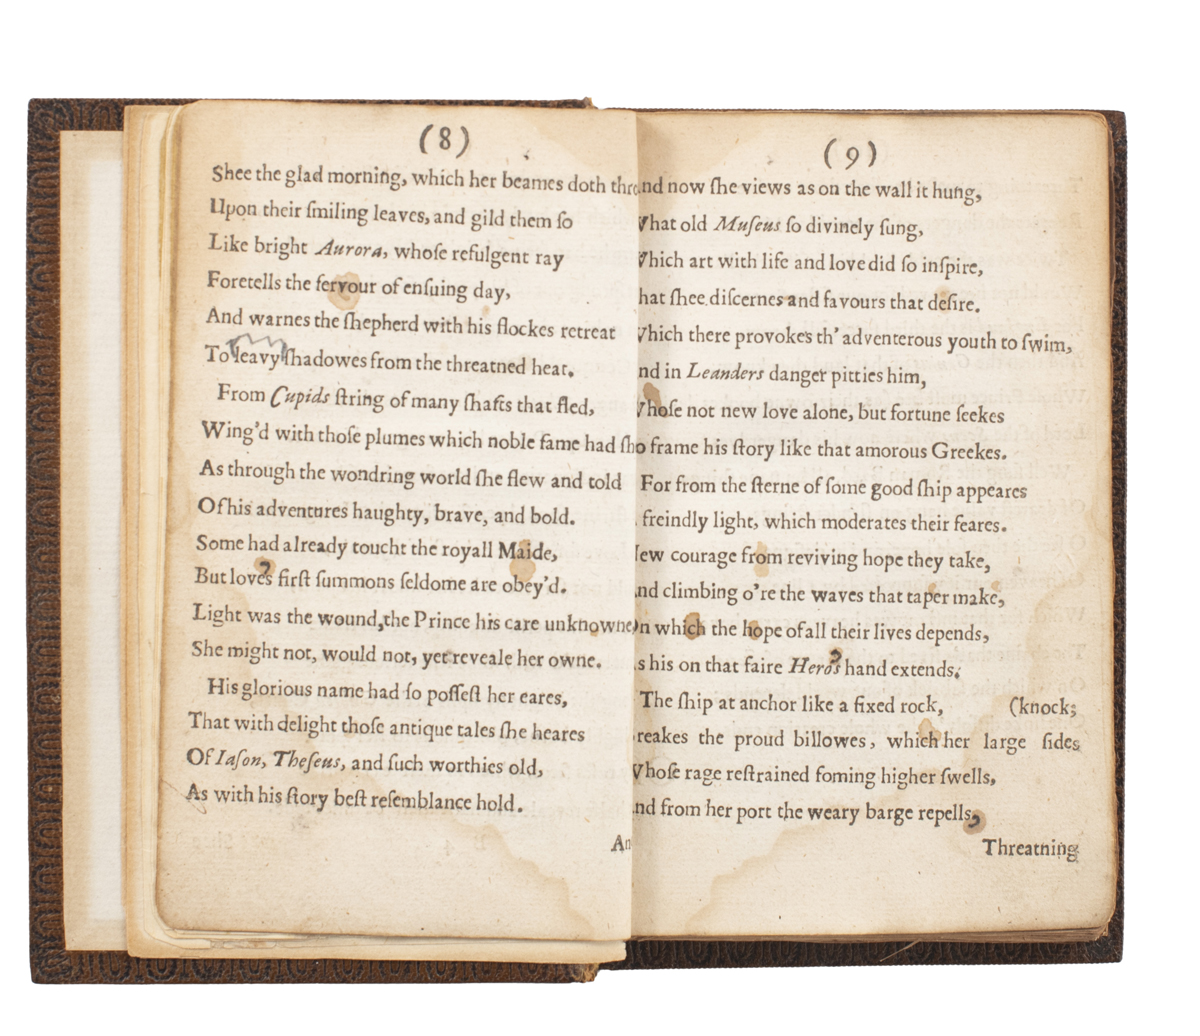 (8)
Shee the glad morning, which her beames doth thro
Upon their ſmiling leaves, and gild them ſo
Like bright Aurora, whoſe refulgent ray
Foretells the fervour of enſuing day,
And warnes the ſhepherd with his flockes retreat
To leavy ſhadowes from the threatned heat.
From Cupids ſtring of many ſhafts that fled,
Wing'd with thoſe plumes which noble fame had ſh
As through the wondring world ſhe flew and told
Of his adventures haughty, brave, and bold.
Some had already toucht the royall Maide,
But love's firſt ſummons ſeldome are obey'd.
Light was the wound, the Prince his care unknowne,
She might not, would not, yet reveale her owne.
His glorious name had ſo poſſeſt her eares,
That with delight thoſe antique tales ſhe heares
Of Iaſon, Theſeus, and ſuch worthies old,
As with his ſtory beſt reſemblance hold.
An
(9)
nd now ſhe views as on the wall it hung,
What old Muſeus ſo divinely ſung,
Which art with life and love did ſo inſpire,
hat ſhee diſcernes and favours that deſire.
Which there provokes th' adventerous youth to ſwim,
nd in Leanders danger pitties him,
Whoſe not new love alone, but fortune ſeekes
o frame his ſtory like that amorous Greekes.
For from the ſterne of ſome good ſhip appeares
freindly light, which moderates their feares.
New courage from reviving hope they take,
nd climbing o're the waves that taper make,
On which the hope of all their lives depends,
s his on that faire Hero's hand extends.
The ſhip at anchor like a fixed rock, (knock;
reakes the proud billowes, which her large ſides
Whoſe rage reſtrained foming higher ſwells,
nd from her port the weary barge repells,
Threatning